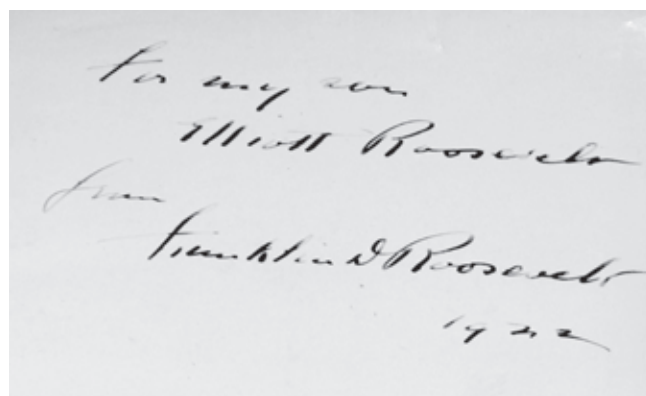 For my son
Elliott Roosevelt
from
Franklin D Roosevelt
1942